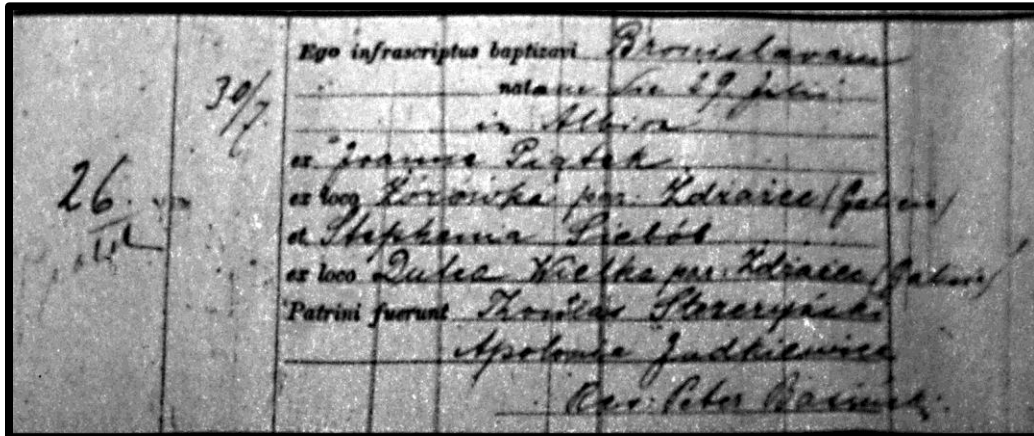 Ego infrascriptus baptizavi Bronislavam
30/7 natam die 29 Julii
in Albion
ex Joanne Piątek
26 ex loco par. Zdziarec (Galicia)
et Stephania
ex loco Dulca Wielka par. Zdziarec (Galicia)
Patrini fuerunt Thomas
Apolonia Judkiewicz
Peter Basinski